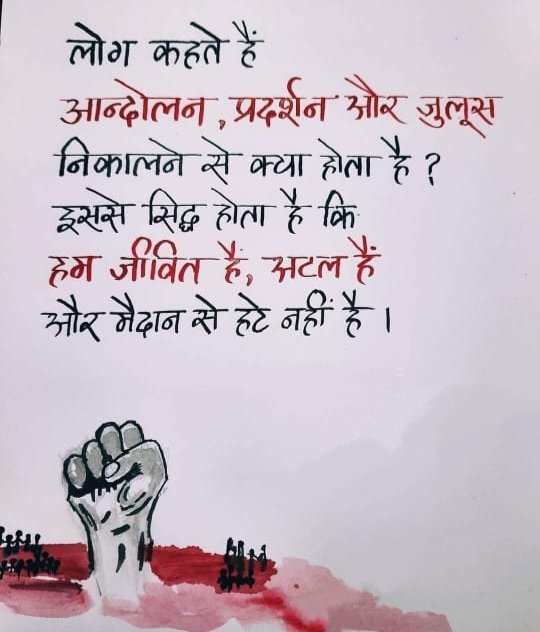 लोग कहते हैं
आन्दोलन, प्रदर्शन और जुलूस
निकालने से क्या होता है ?
इससे सिद्ध होता है कि
हम जीवित हैं, अटल हैं
और मैदान से हटे नहीं है ।